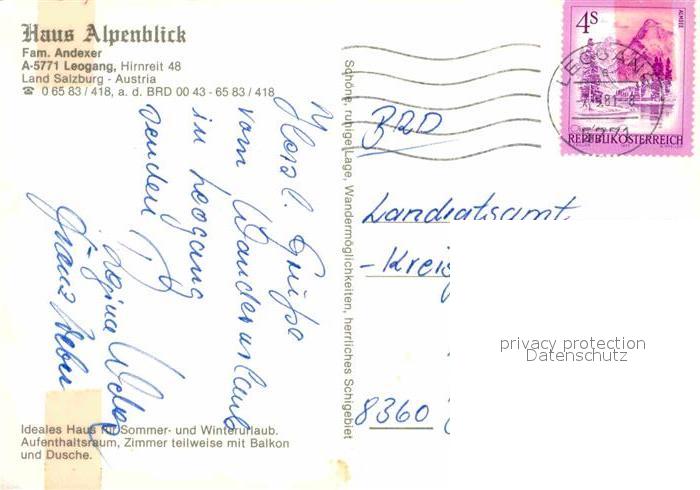 Haus Alpenblick
Fam. Andexer
A-5771 Leogang, Hirnreit 48
Land Salzburg - Austria
☎ 0 65 83 / 418, a. d. BRD 00 43 - 65 83 / 418
Herzl. Grüße
vom Wanderurlaub
in Leogang
senden
Regina
Franz Weber
Ideales Haus für Sommer- und Winterurlaub.
Aufenthaltsraum, Zimmer teilweise mit Balkon
und Dusche.
Schöne, ruhige Lage, Wandermöglichkeiten, herrliches Schigebiet
4S
ALMSEE
REPUBLIK ÖSTERREICH
LEOGANG
5771
BRD
Landratsamt
- Kreis
8360
privacy protection
Datenschutz